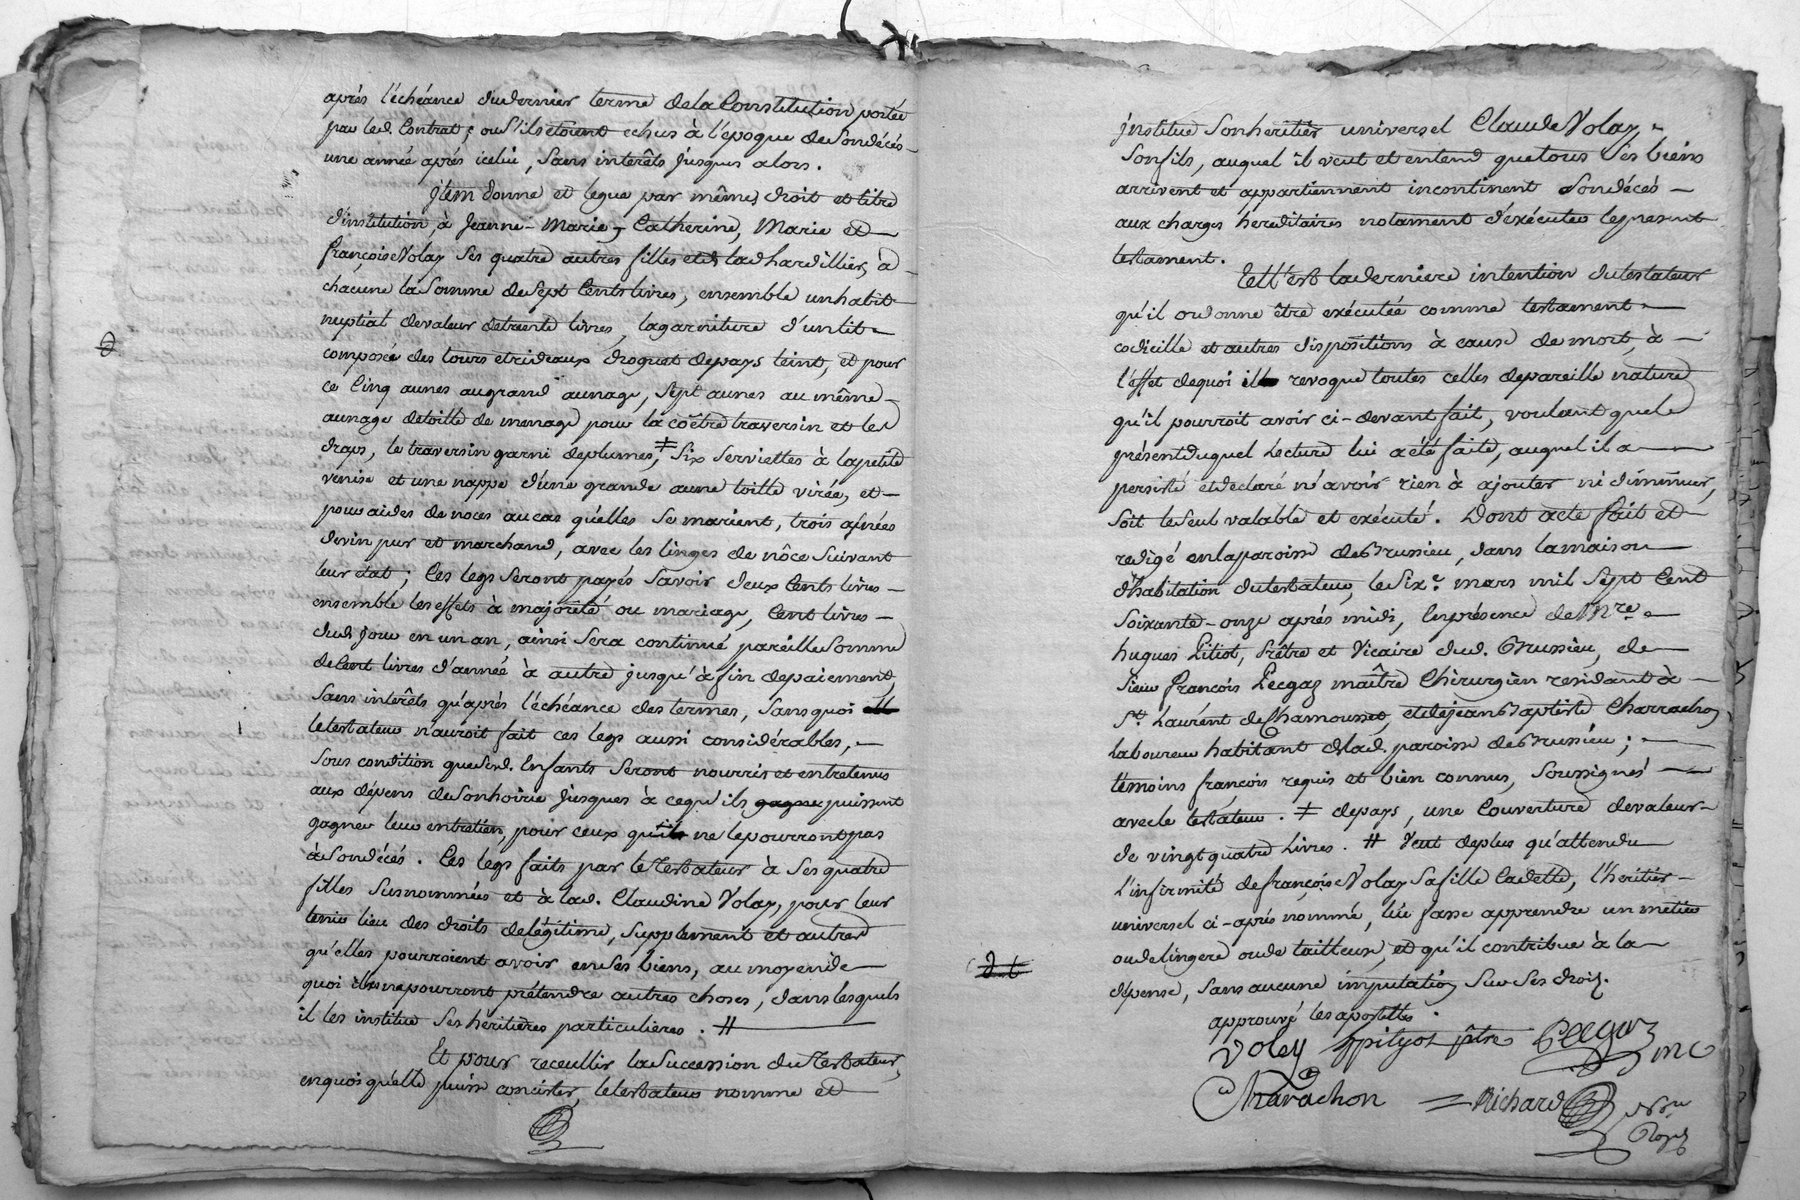 après l'échéance du dernier terme de la Constitution portée
par led. Contrat; ou s'ils étoient echus à l'epoque de Son décés
une année aprés icelui, Sans interêts jusques alors.
Jtem donne et legue par mêmes droit et titre
d'institution à Jeanne-Marie, Catherine, Marie et
françoise Volay Ses quatre autres filles et de lad. hardillier, à
chacune la Somme de Sept Cents livres, ensemble un habit
nuptial de valeur de trente livres, la garniture d'un lit
composée des tours et rideaux droguet de pays teint, et pour
ce Cinq aunes au grand aunage, Sept aunes au même
aunage de toille de menage pour la coëtre traversin et les
draps, le traversin garni de plumes, ≠ Six Serviettes à la petite
venise et une nappe d'une grande aune toille virée, et
pour aides de noces au cas qu'elles se marient, trois asnées
de vin pur et marchand, avec les linges de nôce Suivant
leur état; Ces legs Seront payés Savoir deux Cents livres
ensemble les effets à majorité ou mariage, Cent livres
dud. jour en un an, ainsi Sera continué pareille Somme
de Cent livres d'année à autre jusqu'à fin de paiement,
Sans interêts qu'après l'échéance des termes, Sans quoi
le testateur n'auroit fait ces legs aussi considérables,
Sous condition que Sesd. Enfants Seront nourris et entretenus
aux dépens de Son hoirie jusques à ce qu'ils gagne puissent
gagner leur entretien, pour ceux qui ne le pourront pas
à Son décés. Ces legs faits par le Testateur à Ses quatre
filles Susnommées et à lad. Claudine Volay, pour leur
tenir lieu des droits de légitime, Supplement et autres
qu'elles pourroient avoir en Ses biens, au moyen de
quoi elles ne pourront prétendre autres choses, dans lesquels
il les institue Ses héritières particulieres. #
Et pour receuillir la Succession du Testateur,
en quoi qu'elle puisse concister, le testateur nomme et
jnstitue Son heritier universel Claude Volay
Son fils, auquel il veut et entend que tous Ses biens
arrivent et appartiennent incontinent Son décés
aux charges hereditaires notament d'exécuter le present
testament.
Telle est la derniere intention du testateur
qu'il ordonne être exécutée comme testament
codicille et autres dispositions à cause de mort, à
l'effet de quoi il revoque toutes celles de pareille nature
qu'il pourroit avoir ci-devant fait, voulant que le
présent duquel Lecture lui a été faite, auquel il a
persisté et declaré n'avoir rien à ajouter ni diminuer,
Soit le Seul valable et exécuté. Dont acte fait et
redigé en la paroisse de Brussieu, dans la maison
d'habitation du testateur, le Six.e mars mil Sept Cent
Soixante-onze après midi, En présence de Mre.
hugues Pitiot, Prêtre et Vicaire dud. Brussieu, de
Sieur françois Pecgaz maître Chirurgien residant à
St. Laurent de Chamousset, et de jean Baptiste Charrachon
laboureur habitant de lad. paroisse de Brussieu;
témoins françois requis et bien connus, Soussignés
avec le testateur. ≠ de pays, une Couverture de valeur
de vingt quatre Livres. # Veut de plus qu'attendu
L'infirmité de françoise Volay Sa fille Cadette, l'héritier
universel ci-aprés nommé, lui fasse apprendre un métier
ou de lingere ou de tailleuse, et qu'il contribue à la
dépense, Sans aucune imputation Sur Ses droits.
approuvé les apostilles.
Volay ppityot ptre Pecgaz mC
Charrachon Richard Nore
Royal